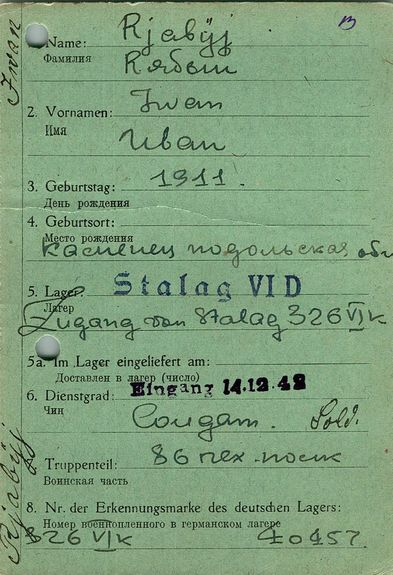 Iwan
B
Name: Rjabÿj
Фамилия Рябый
2. Vornamen: Iwan
Имя
Иван
3. Geburtstag: 1911.
День рождения
4. Geburtsort:
Место рождения
подольская обл
5. Lager: Stalag VI D
Лагер
Zugang von Stalag 326 VI K
5a. Im Lager eingeliefert am:
Доставлен в лагер (число)
Eingang 14.12.42
6. Dienstgrad:
Чин Солдат. Sold.
Truppenteil: 86 пех. полк
Воинская часть
8. Nr. der Erkennungsmarke des deutschen Lagers:
Номер военнопленного в германском лагере
326 VI K 40457.
Rjabÿj